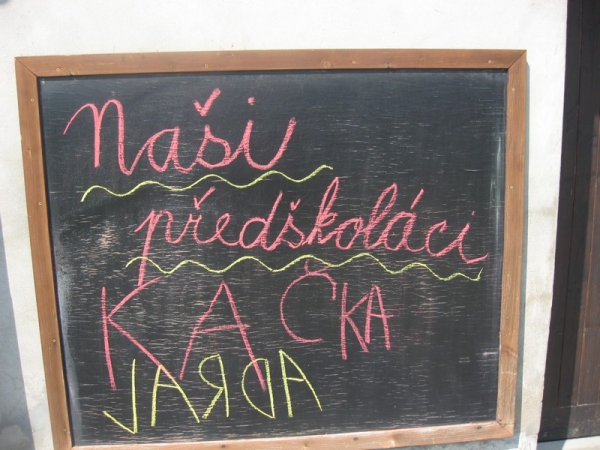 Naši
předškoláci
KAČKA
JARDA